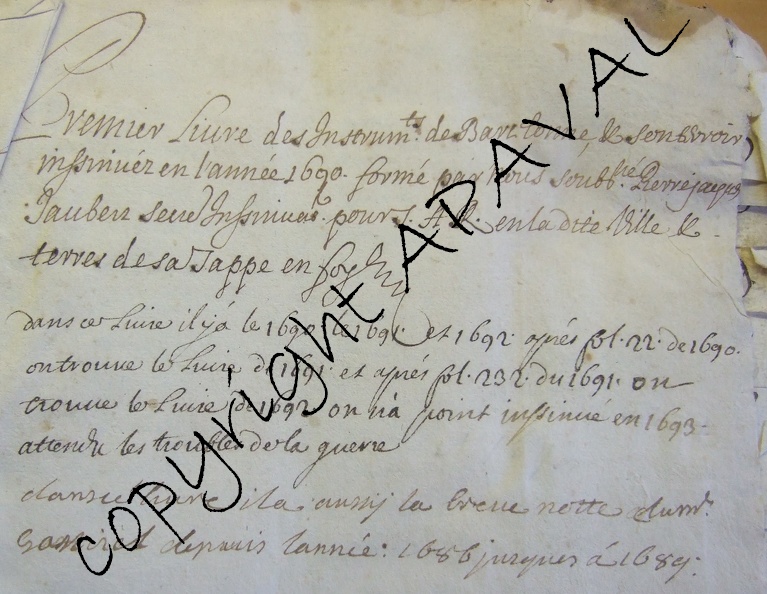 Premier Livre des Instrum.ts de Barcelonne & son terroir
inssinuéz en l'année 1690. formé par nous soubs.né Pierre jaques
Jaubert secre Inssinuar. pour S. A. R. en la dite Ville &
terres de sa Tappe en foy
dans ce Livre il yá le 1690. le 1691. et 1692. aprés fol. 22. de 1690.
on trouve le Livre de 1691. et aprés fol. 232. du 1691. on
trouve le Livre de 1692. on n'a point inssinué en 1693.
attendu les troubles de la guerre
dans ce livre il a aussy la breve notte du mr.
depuis lannée: 1686 jusques á 1689.
copyright APAVAL